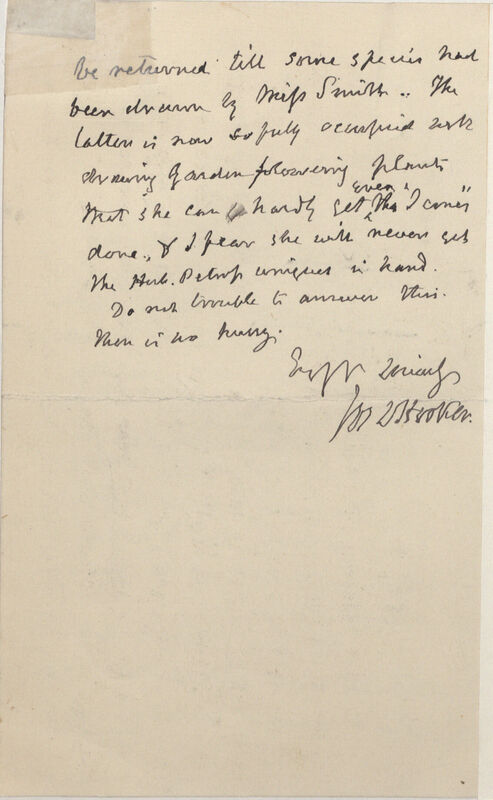 be returned till some species had
been drawn by Miss Smith.. The
latter is now so fully occupied with
drawing Garden flowering plants
that she can hardly get even the "Icones"
done., & I fear she will never get
the Herb. Petrop uniques in hand.
Do not trouble to answer this.
there is no hurry.
Ever yr sincerely
Jos D Hooker.